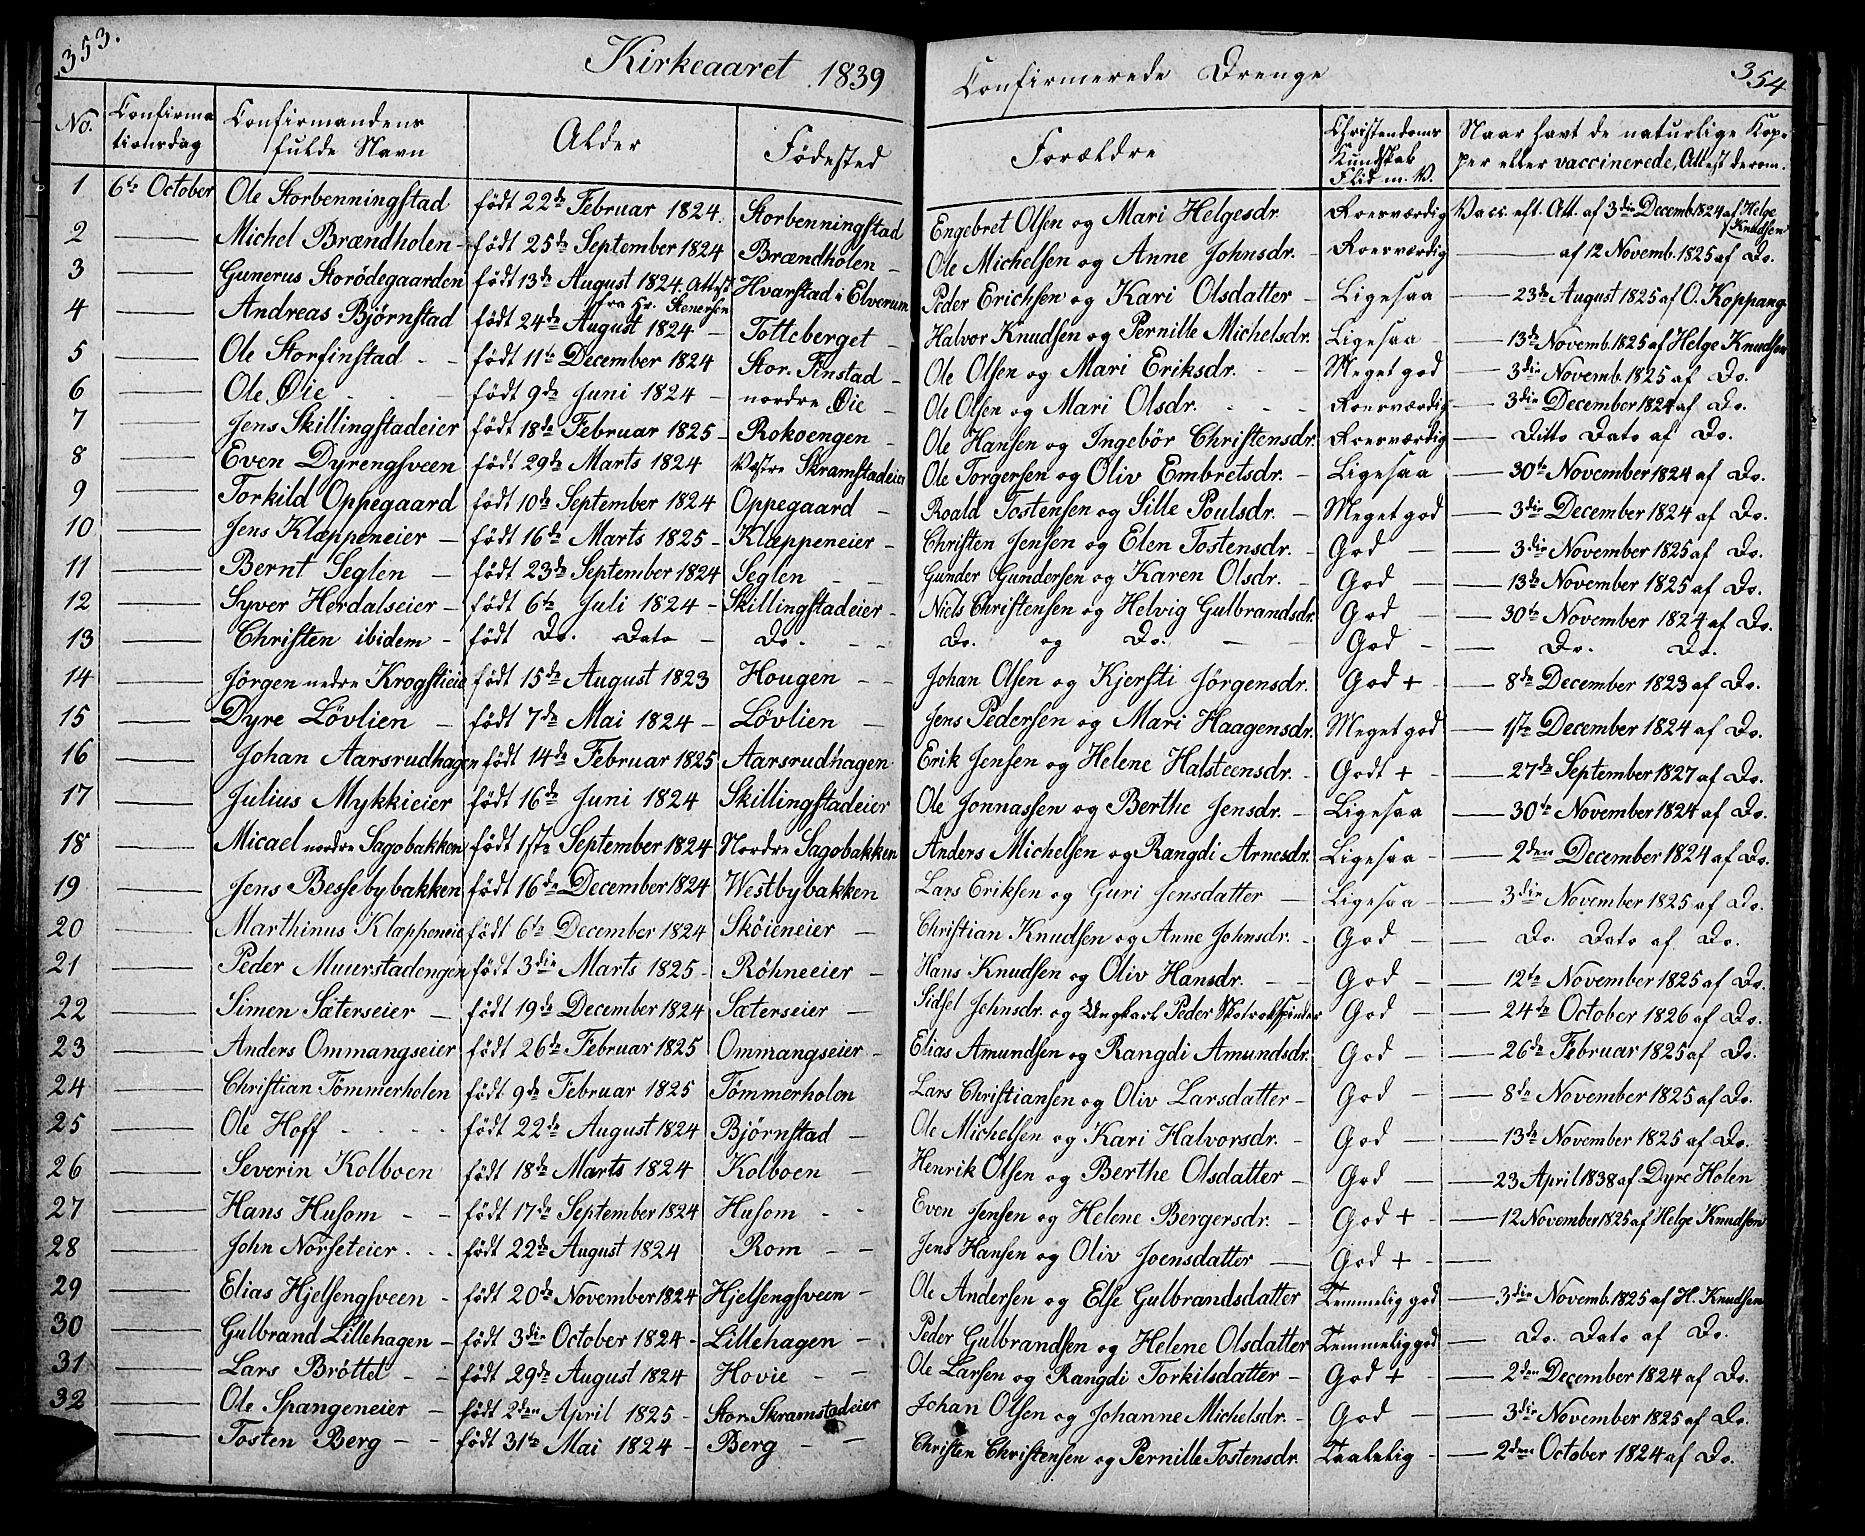 353.
Kirkeaaret 1839
Confirmerede Drenge
354
No. | Confirmationsdag | Confirmandens fulde Navn | Alder | Födested | Forældre | Christendoms Kundskab Flid m. V. | Naar havt de naturlige Kopper eller vaccinerede, Attest derom.
1 | 6te October | Ole Storbenningstad | född 22de Februar 1824. | Storbenningstad | Engebret Olsen og Mari Helgesdr. | Roesværdig | Vacc. eft. Att. af 3die Decemb 1824 af Helge Knudsen
2 | — | Michel Brændholen - | född 25de September 1824 | Brændholen - | Ole Michelsen og Anne Johnsdr. - | Roesværdig | — af 12 Novemb. 1825 af Do.
3 | — | Gunerus Storödegaarden | född 13de August 1824. Attest fra Hr. Stenersen | Hvarstad i Elverum | Peder Erichsen og Kari Olsdatter - | Ligesaa | — 23de August 1825 af O. Koppang
4 | — | Andreas Bjørnstad | född 24de August 1824 - | Totteberget - | Halvor Knudsen og Pernille Michelsdr. | Ligesaa - | — 13de Novemb. 1825 af Helge Knudsen
5 | — | Ole Storfinstad - - | född 11te December 1824 | Stor. Finstad - | Ole Olsen og Mari Eriksdr. - - | Meget god | — 3die Novemb. 1825 af Do.
6 | — | Ole Øie - - - | född 9de Juni 1824 - | nordre Øie - | Ole Olsen og Mari Olsdr. - - - | Roesværdig | — 3die December 1824 af Do.
7 | — | Jens Skillingstadeier | född 18de Februar 1825 - | Rokoengen - | Ole Hansen og Ingebör Christensdr. | Roesværdig | — Ditto Dato af Do.
8 | — | Even Dyrengsveen | född 29de Marts 1824 | Vestre Skramstadeier | Ole Torgersen og Oliv Embretsdr. - | Ligesaa | — 30te November 1824 af Do.
9 | — | Torkild Oppegaard | född 10de September 1824 | Oppegaard - | Roald Tostensen og Sille Poulsdr. - | Meget god | — 3die December 1824 af Do.
10 | — | Jens Klæppeneier - | född 16de Marts 1825 - | Klæppeneier - | Christen Jensen og Elen Tostensdr. - | God - | — 3die November 1825 af Do.
11 | — | Bernt Seglen - | född 23de September 1824 | Seglen - - | Gunder Gundersen og Karen Olsdr. - | God - | — 13de November 1825 af Do.
12 | — | Syver Herdalseier - | född 6te Juli 1824 - | Skillingstadeier - | Niels Christensen og Helvig Gulbrandsdr. | God - | — 30te November 1824 af Do.
13 | — | Christen ibidem - | född Do. Dato - | Do. - - | Do. og Do. - - | God - | — Do. Do.
14 | — | Jörgen nedre Krogstieie | född 15de August 1823 | Hougen - - | Johan Olsen og Kjersti Jörgensdr. | God + - | 8de December 1823 af Do.
15 | — | Dyre Lövlien - | född 7de Mai 1824 - | Lövlien - | Jens Pedersen og Mari Haagensdr. | Meget god | — 1ste December 1824 af Do.
16 | — | Johan Aarsrudhagen | född 14de Februar 1825 | Aarsrudhagen | Erik Jensen og Helene Halsteensdr. - | Godt + - | — 27de September 1827 af Do.
17 | — | Julius Mykkieier | född 16de Juni 1824 | Skillingstadeier | Ole Jonnassen og Berthe Jensdr. - | Ligesaa | — 30te November 1824 af Do.
18 | — | Micael nordre Sagobakken | född 1ste September 1824 | Nordre Sagobakken | Anders Michelsen og Rangdi Arnesdr. | Ligesaa - | — 2den December 1824 af Do.
19 | — | Jens Bessebybakken | född 16de December 1824 | Westbybakken | Lars Eriksen og Guri Jensdatter - | Ligesaa - | — 3die November 1825 af Do.
20 | — | Marthinus Klæppeneie | född 6te December 1824 | Sköieneier - | Christian Knudsen og Anne Johnsdr. - | God - | — Do. Dato af Do.
21 | — | Peder Muurstadengen | född 3die Marts 1825 - | Röhneeier - | Hans Knudsen og Oliv Hansdr. - - | God - | — 12te November 1825 af Do.
22 | — | Simen Sæterseier - | född 19de December 1824 | Sæterseier - | Sidsel Johnsdr. og Ungkarl Peder | God - | — 24de October 1826 af Do.
23 | — | Anders Ommangseier | född 26de Februar 1825 | Ommangseier - | Elias Amundsen og Rangdi Amundsdr. | God - | — 26de Februar 1825 af Do.
24 | — | Christian Tömmerholen | född 9de Februar 1825 | Tömmerholen | Lars Christiansen og Oliv Larsdatter - | God - | — 8de November 1825 af Do.
25 | — | Ole Hoff - - - - | född 22de August 1824 | Bjørnstad - | Ole Michelsen og Kari Halvorsdr. - | God - | — 13de November 1825 af Do.
26 | — | Severin Kolboen | född 18de Marts 1824 | Kolboen - | Henrik Olsen og Berthe Olsdatter - | God - | — 23 April 1838 af Dyre Holen
27 | — | Hans Husom - - | född 17de September 1824 | Husom - - | Even Jensen og Helene Bergersdr. - | God + - | — 12 November 1825 af Helge Knudsen
28 | — | John Norseteier. - - | född 22de August 1824 | Rom - - | Jens Hansen og Oliv Joensdatter — | God + - | —
29 | — | Elias Hjelsengsveen - | född 20de November 1824 | Hjelsengsveen - | Ole Andersen og Else Gulbrandsdatter | Temmelig god | — 3die Novemb. 1825 af H. Knudsen
30 | — | Gulbrand Lillehagen - | född 3die October 1824 - | Lillehagen - | Peder Gulbrandsen og Helene Olsdatter | Temmelig god | — Do. Dato af Do.
31 | — | Lars Bröttet - - | född 29de August 1824 | Hovie - - | Ole Larsen og Rangdi Torkilsdatter - | God + - | — 2den December 1824 af Do.
32 | — | Ole Spangeneier - | född 2den April 1825 - | Stor. Skramstadeier | Johan Olsen og Johanne Michelsdr. - | God - | — 3die November 1825 af Do.
— | Tosten Berg - - | född 31te Mai 1824 - | Berg - - | Christen Christensen og Pernille Tostensdr. | Taalelig - | — 2den October 1824 af Do.